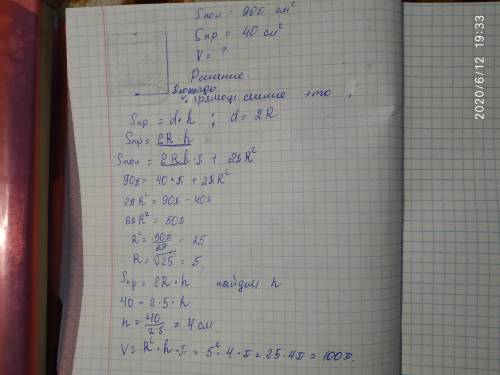 Sпол = 90π см²
Sпр = 40 см²
V = ?
Решение
Площадь
прямоц. сечение это
Sпр. = d·h ; d = 2R
Sпр = 2R·h
Sпол = 2Rh·π + 2πR²
90π = 40·π + 2πR²
2πR² = 90π - 40π
2πR² = 50π
R² = 50π/2π = 25
R = √25 = 5
Sпр = 2R·h найдем h
40 = 2·5·h
h = 40/2·5 = 4 см
V = R²·h·π = 5²·4·π = 25·4π = 100π.
2020/6/12 19:33